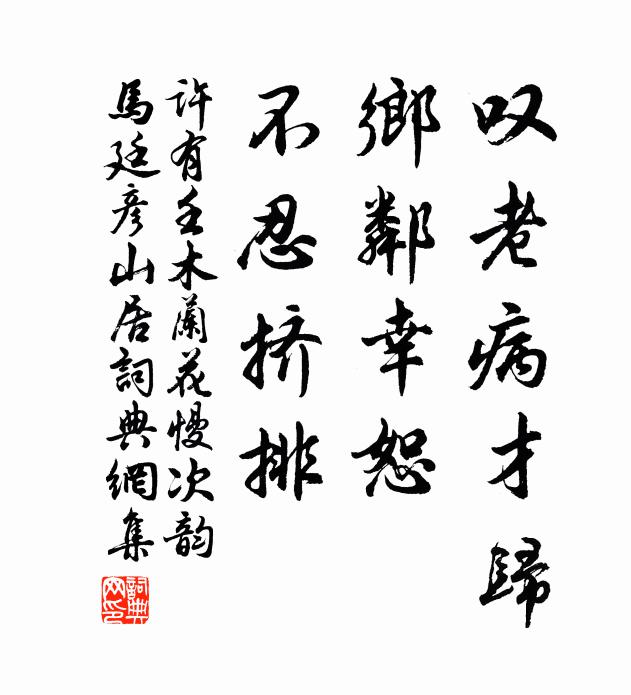 叹老病才歸
鄉鄰幸恕
不忍挤排
许有壬木蘭花慢次韵
馬廷彦山居詞典網集
詞典
网印